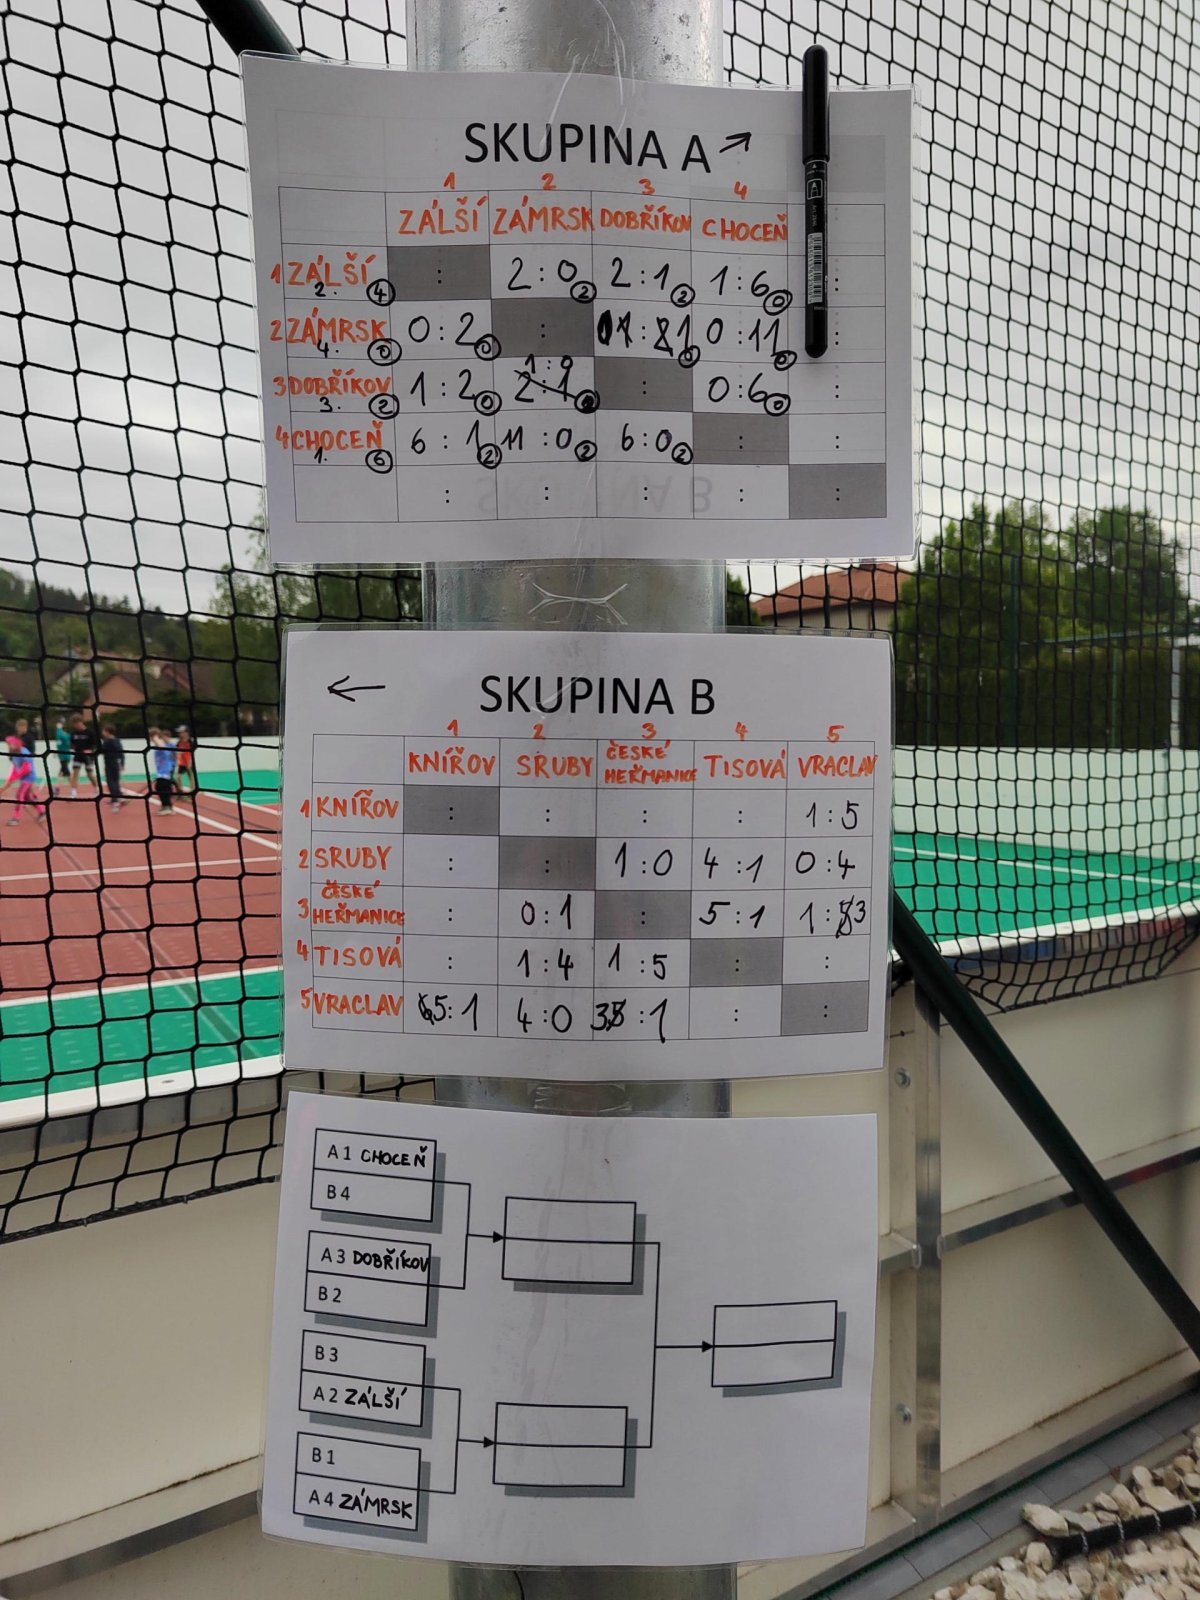 SKUPINA A
1 2 3 4
ZÁLŠÍ ZÁMRSK DOBŘÍKOV CHOCEŇ
1 ZÁLŠÍ 2. 4 : 2:0 2 2:1 2 1:6 0 :
2 ZÁMRSK 4. 0 0:2 0 : 0:1 0 0:11 0 :
1:0
3 DOBŘÍKOV 3. 2 1:2 0 2:1 : 0:6 0 :
4 CHOCEŇ 1. 6 6:1 2 11:0 2 6:0 2 : :
: : : : :
SKUPINA B
1 2 3 4 5
KNÍŘOV SRUBY ČESKÉ HEŘMANICE TISOVÁ VRACLAV
1 KNÍŘOV : : : : 1:5
2 SRUBY : : 1:0 4:1 0:4
3 ČESKÉ HEŘMANICE : 0:1 : 5:1 1:3
4 TISOVÁ : 1:4 1:5 : :
5 VRACLAV 5:1 4:0 3:1 : :
A1 CHOCEŇ
B4
A3 DOBŘÍKOV
B2
B3
A2 ZÁLŠÍ
B1
A4 ZÁMRSK